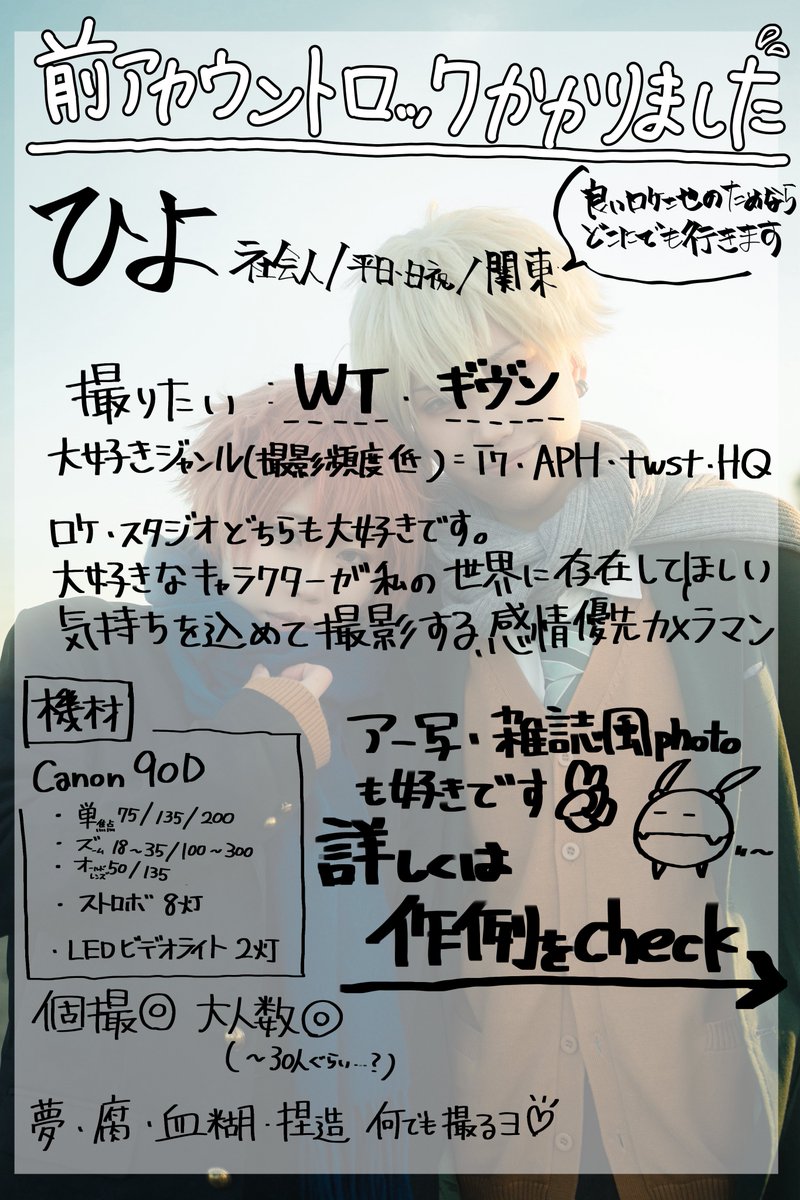 前アカウントロックかかりました
ひよ 社会人/平日・日祝/関東
良いロケ地のためなら
どこにでも行きます
撮りたい:WT・ギヴン
大好きジャンル(撮影頻度低)=i7・APH・twst・HQ
ロケ・スタジオどちらも大好きです。
大好きなキャラクターが私の世界に存在してほしい
気持ちを込めて撮影する、感情優先カメラマン
機材
Canon 90D
・単焦点 75/135/200
・ズーム 18~35/100~300
・オールドレンズ 50/135
・ストロボ 8灯
・LEDビデオライト 2灯
アー写・雑誌風photo
も好きです
詳しくは
作例をcheck
個撮◎ 大人数◎
(~30人ぐらい…?)
夢・腐・血糊・捏造 何でも撮るヨ♡